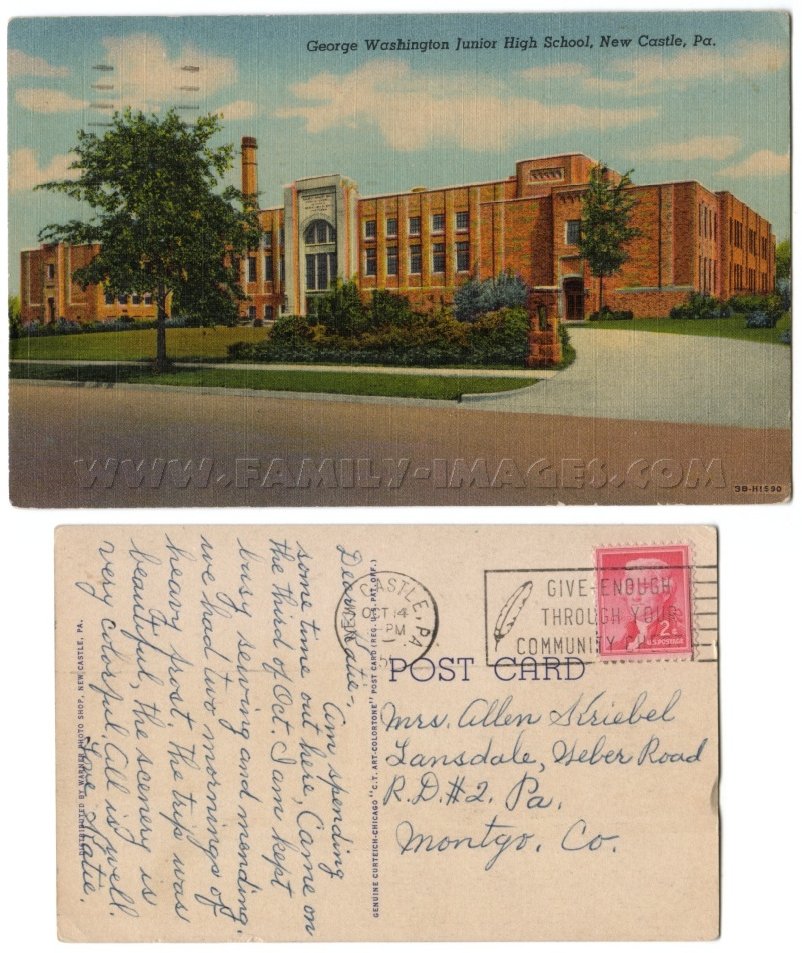 George Washington Junior High School, New Castle, Pa.
WWW.FAMILY-IMAGES.COM
3B-H1590
Dear Katie-,
Am spending
some time out here, Came on
the third of Oct. I am kept
busy sewing and mending.
we had two mornings of
heavy frost. The trip was
beautiful, the scenery is
very colorful. All is well.
Love Katie.
DISTRIBUTED BY WARNER PHOTO SHOP, NEW CASTLE, PA.
GENUINE CURTEICH-CHICAGO "C.T. ART-COLORTONE" POST CARD (REG. U.S. PAT. OFF.)
NEW CASTLE, PA.
OCT 14
PM
GIVE-ENOUGH
THROUGH YOUR
COMMUNITY
2¢
U.S. POSTAGE
POST CARD
Mrs. Allen Kriebel
Lansdale, Weber Road
R.D.#2. Pa.
Montgo. Co.